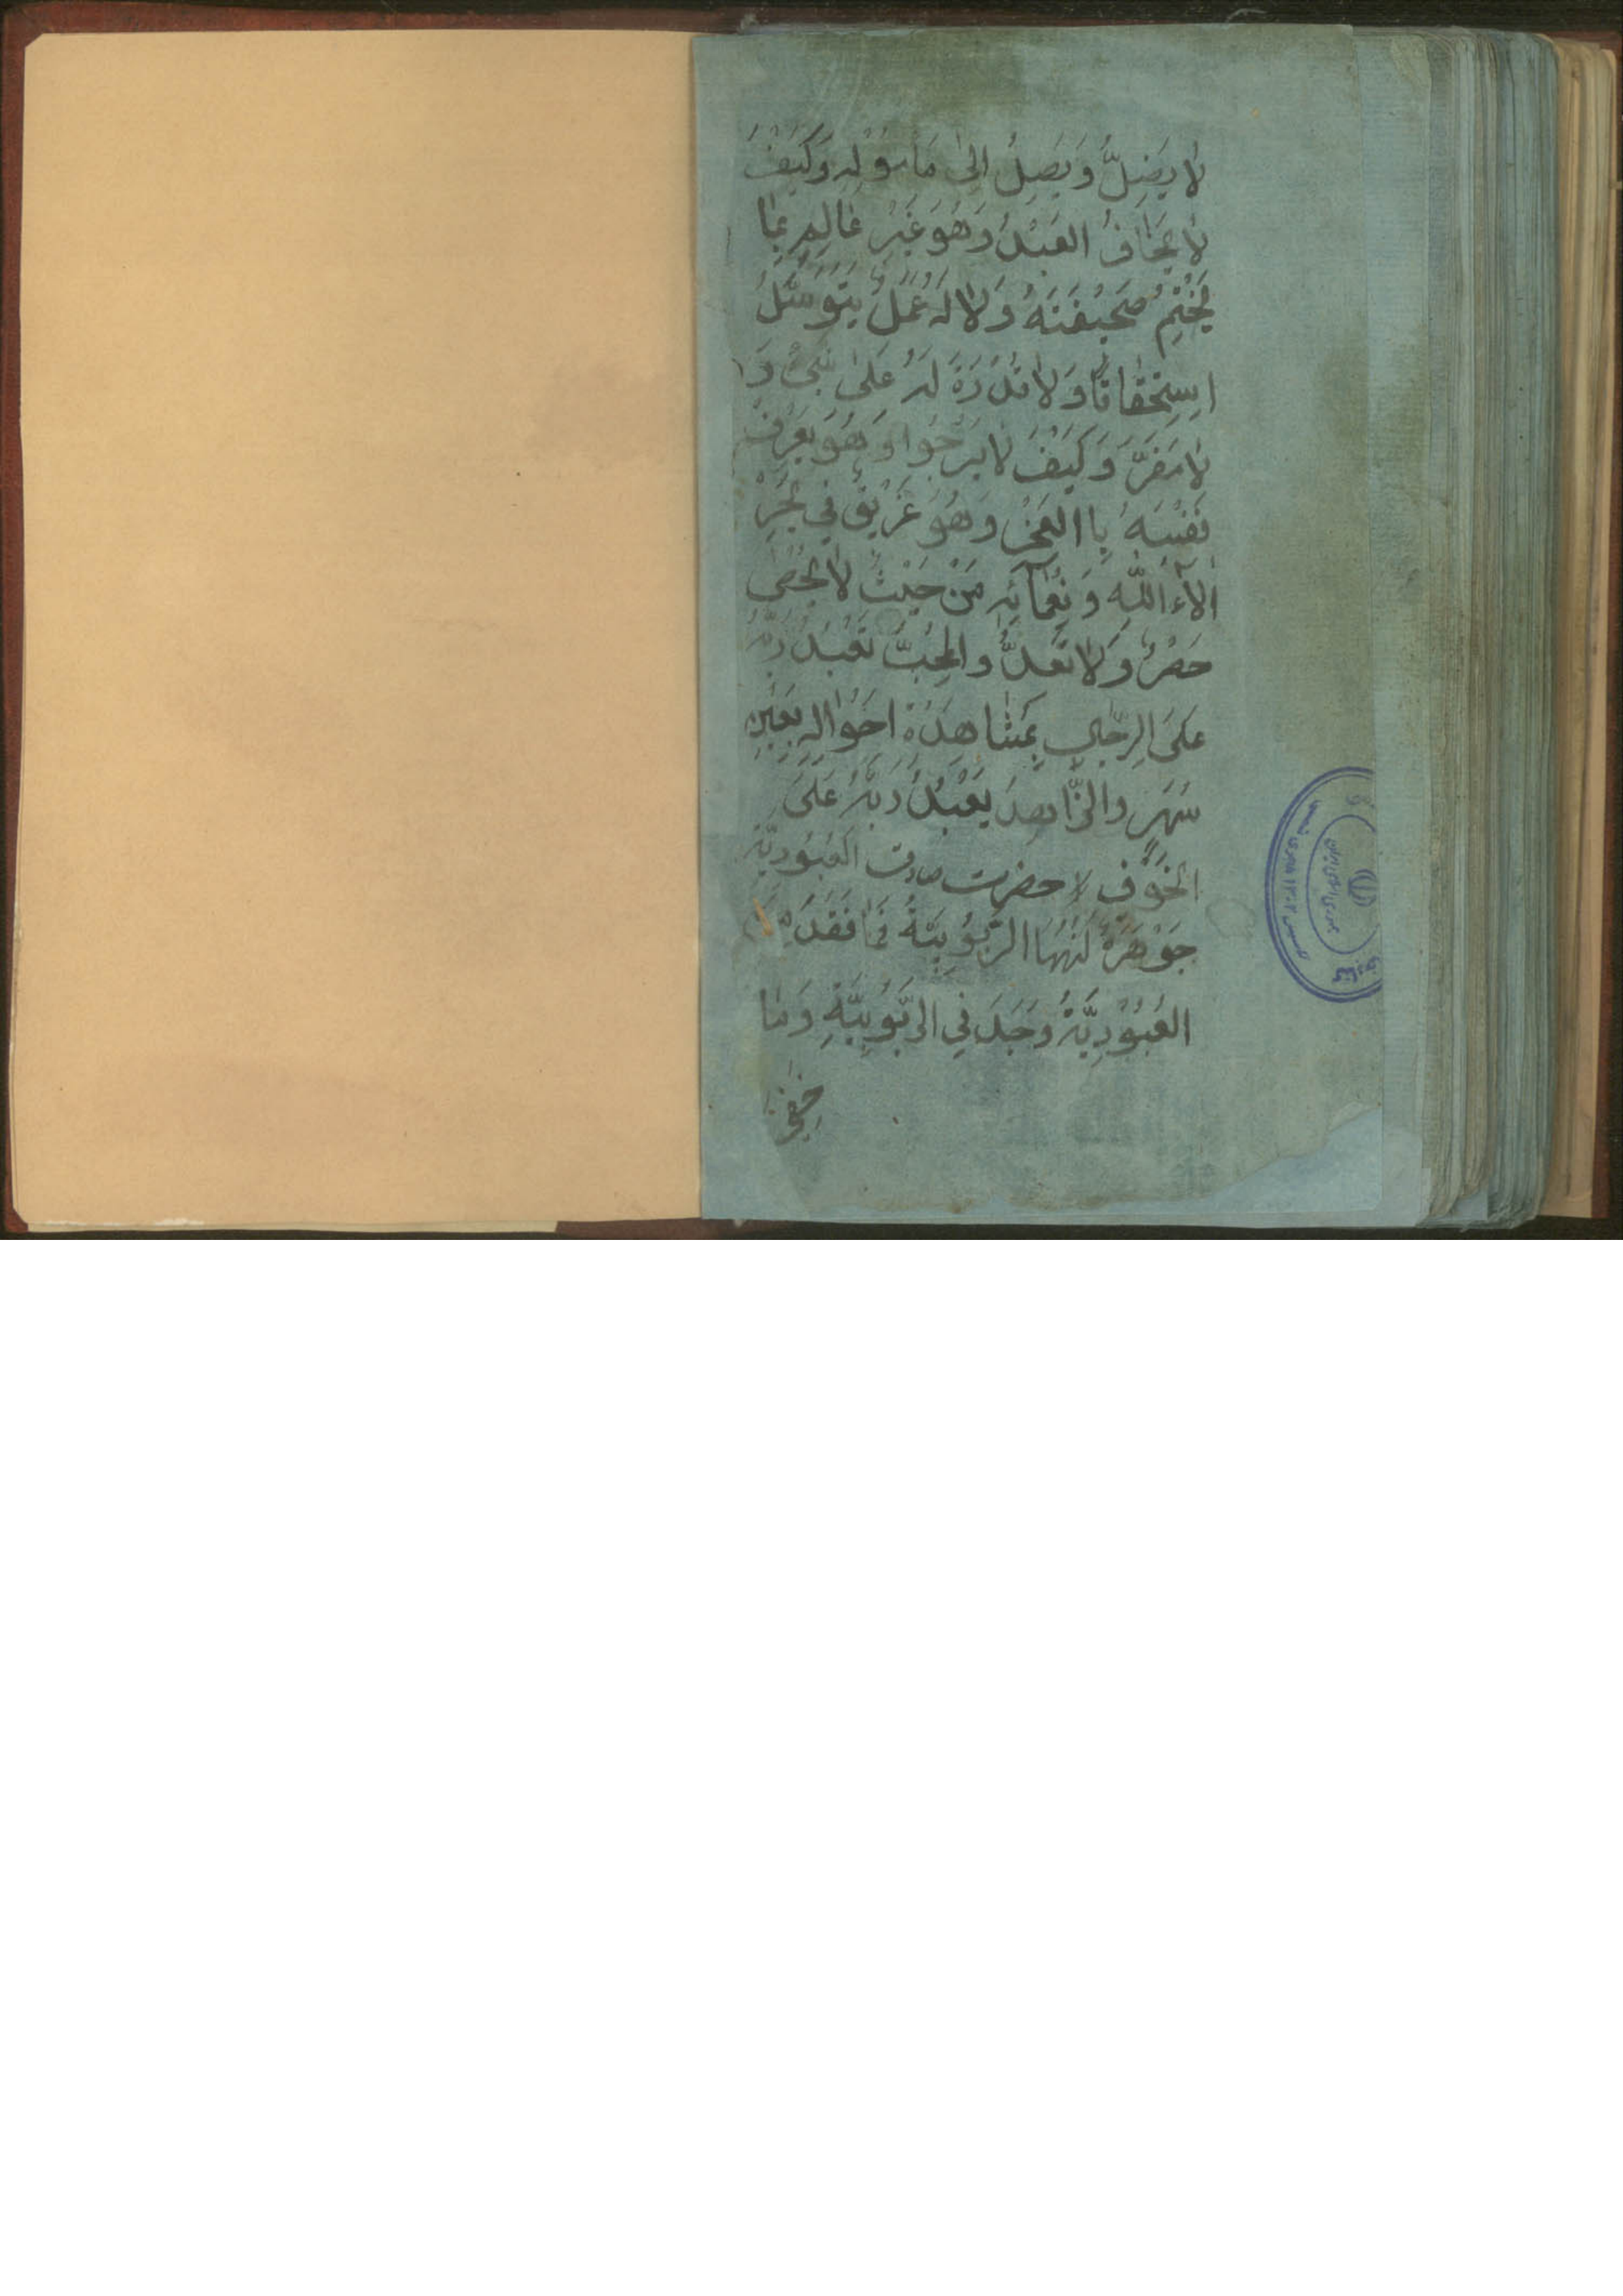 لا يَضِلَّ وَيَصِلُ اِلىٰ مَأمُولِهِ وَكَيْفَ
لا يَخافُ العَبْدُ وَهُوَ غَيْرُ عالِمٍ بِمٰا
يُخْتَمُ صَحيفَتَهُ وَلا لَهُ عَمَلٌ يَتَوَسَّلُ
اِسْتِحْقاقًا وَلا قُدْرَةَ لَهُ عَلىٰ شَيْءٍ وَ
لا مَفَرَّ وَكَيْفَ لا يَرْجُوا وَهُوَ يَعْرِفُ
نَفْسَهُ بِاالعَجْزِ وَهُوَ غَريقٌ في بَحْرِ
اٰلاٰءِ اللّٰهِ وَنَعْمٰائِهِ مِنْ حَيْثُ لا تُحْصىٰ
وَلا تُعَدُّ وَالمُحِبُّ يَعْبُدُ رَبَّهُ
عَلىَ الرِّجاءِ بِمُشاهَدَةِ اَحْوالِهِ بِعَيْنِ
سَهَرٍ وَالزّاهِدُ يَعْبُدُ رَبَّهُ عَلىَ
الخَوْفِ حضرت صادق العُبُودِيَّةُ
جَوْهَرَةٌ كُنْهُهَا الرُّبُوبِيَّةُ فَمٰا فُقِدَ
العُبُودِيَّةِ وُجِدَ فِي الرُّبُوبِيَّةِ وَمٰا
خَفِيَ